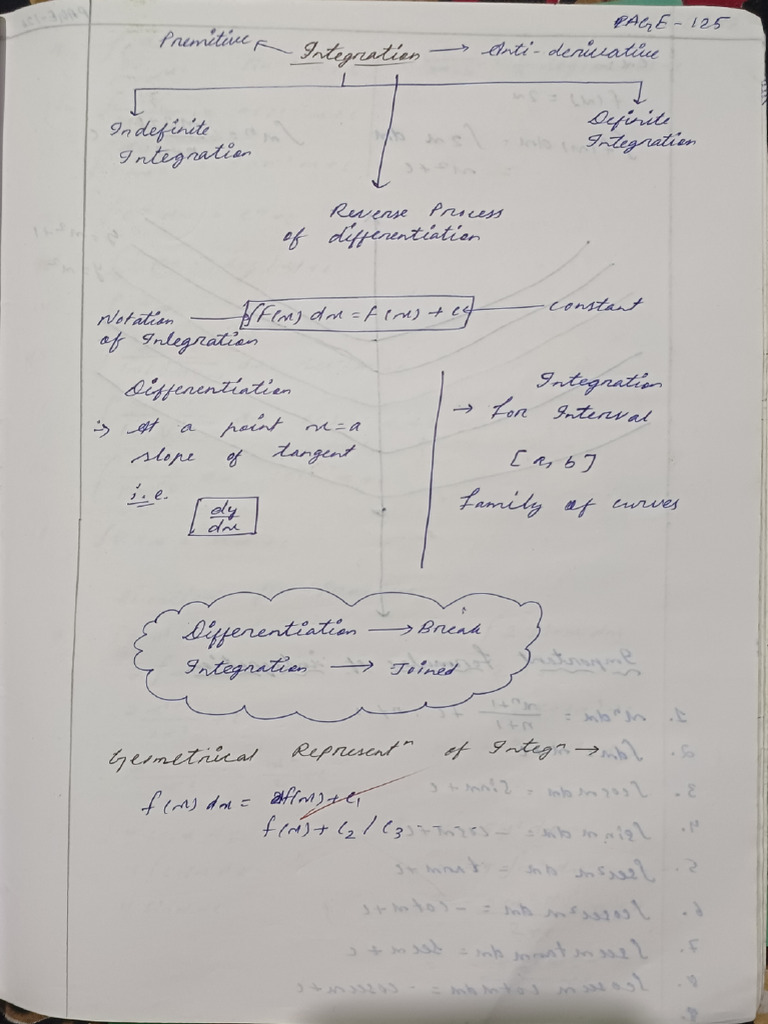 PAGE - 125
Premitive ← Integration → Anti-derivative
Indefinite Integration
Definite Integration
Reverse Process
of differentiation
Notation of Integration
∫f(x) dx = f(x) + c
constant
Differentiation
⇒ At a point x=a
slope of tangent
i.e.
dy/dx
Integration
→ for Interval
[a, b]
family of curves
Differentiation → Break
Integration → Joined
Geometrical Represent^n of Integr^n →
f(x) dx = f(x)+c₁
f(x) + c₂ / c₃